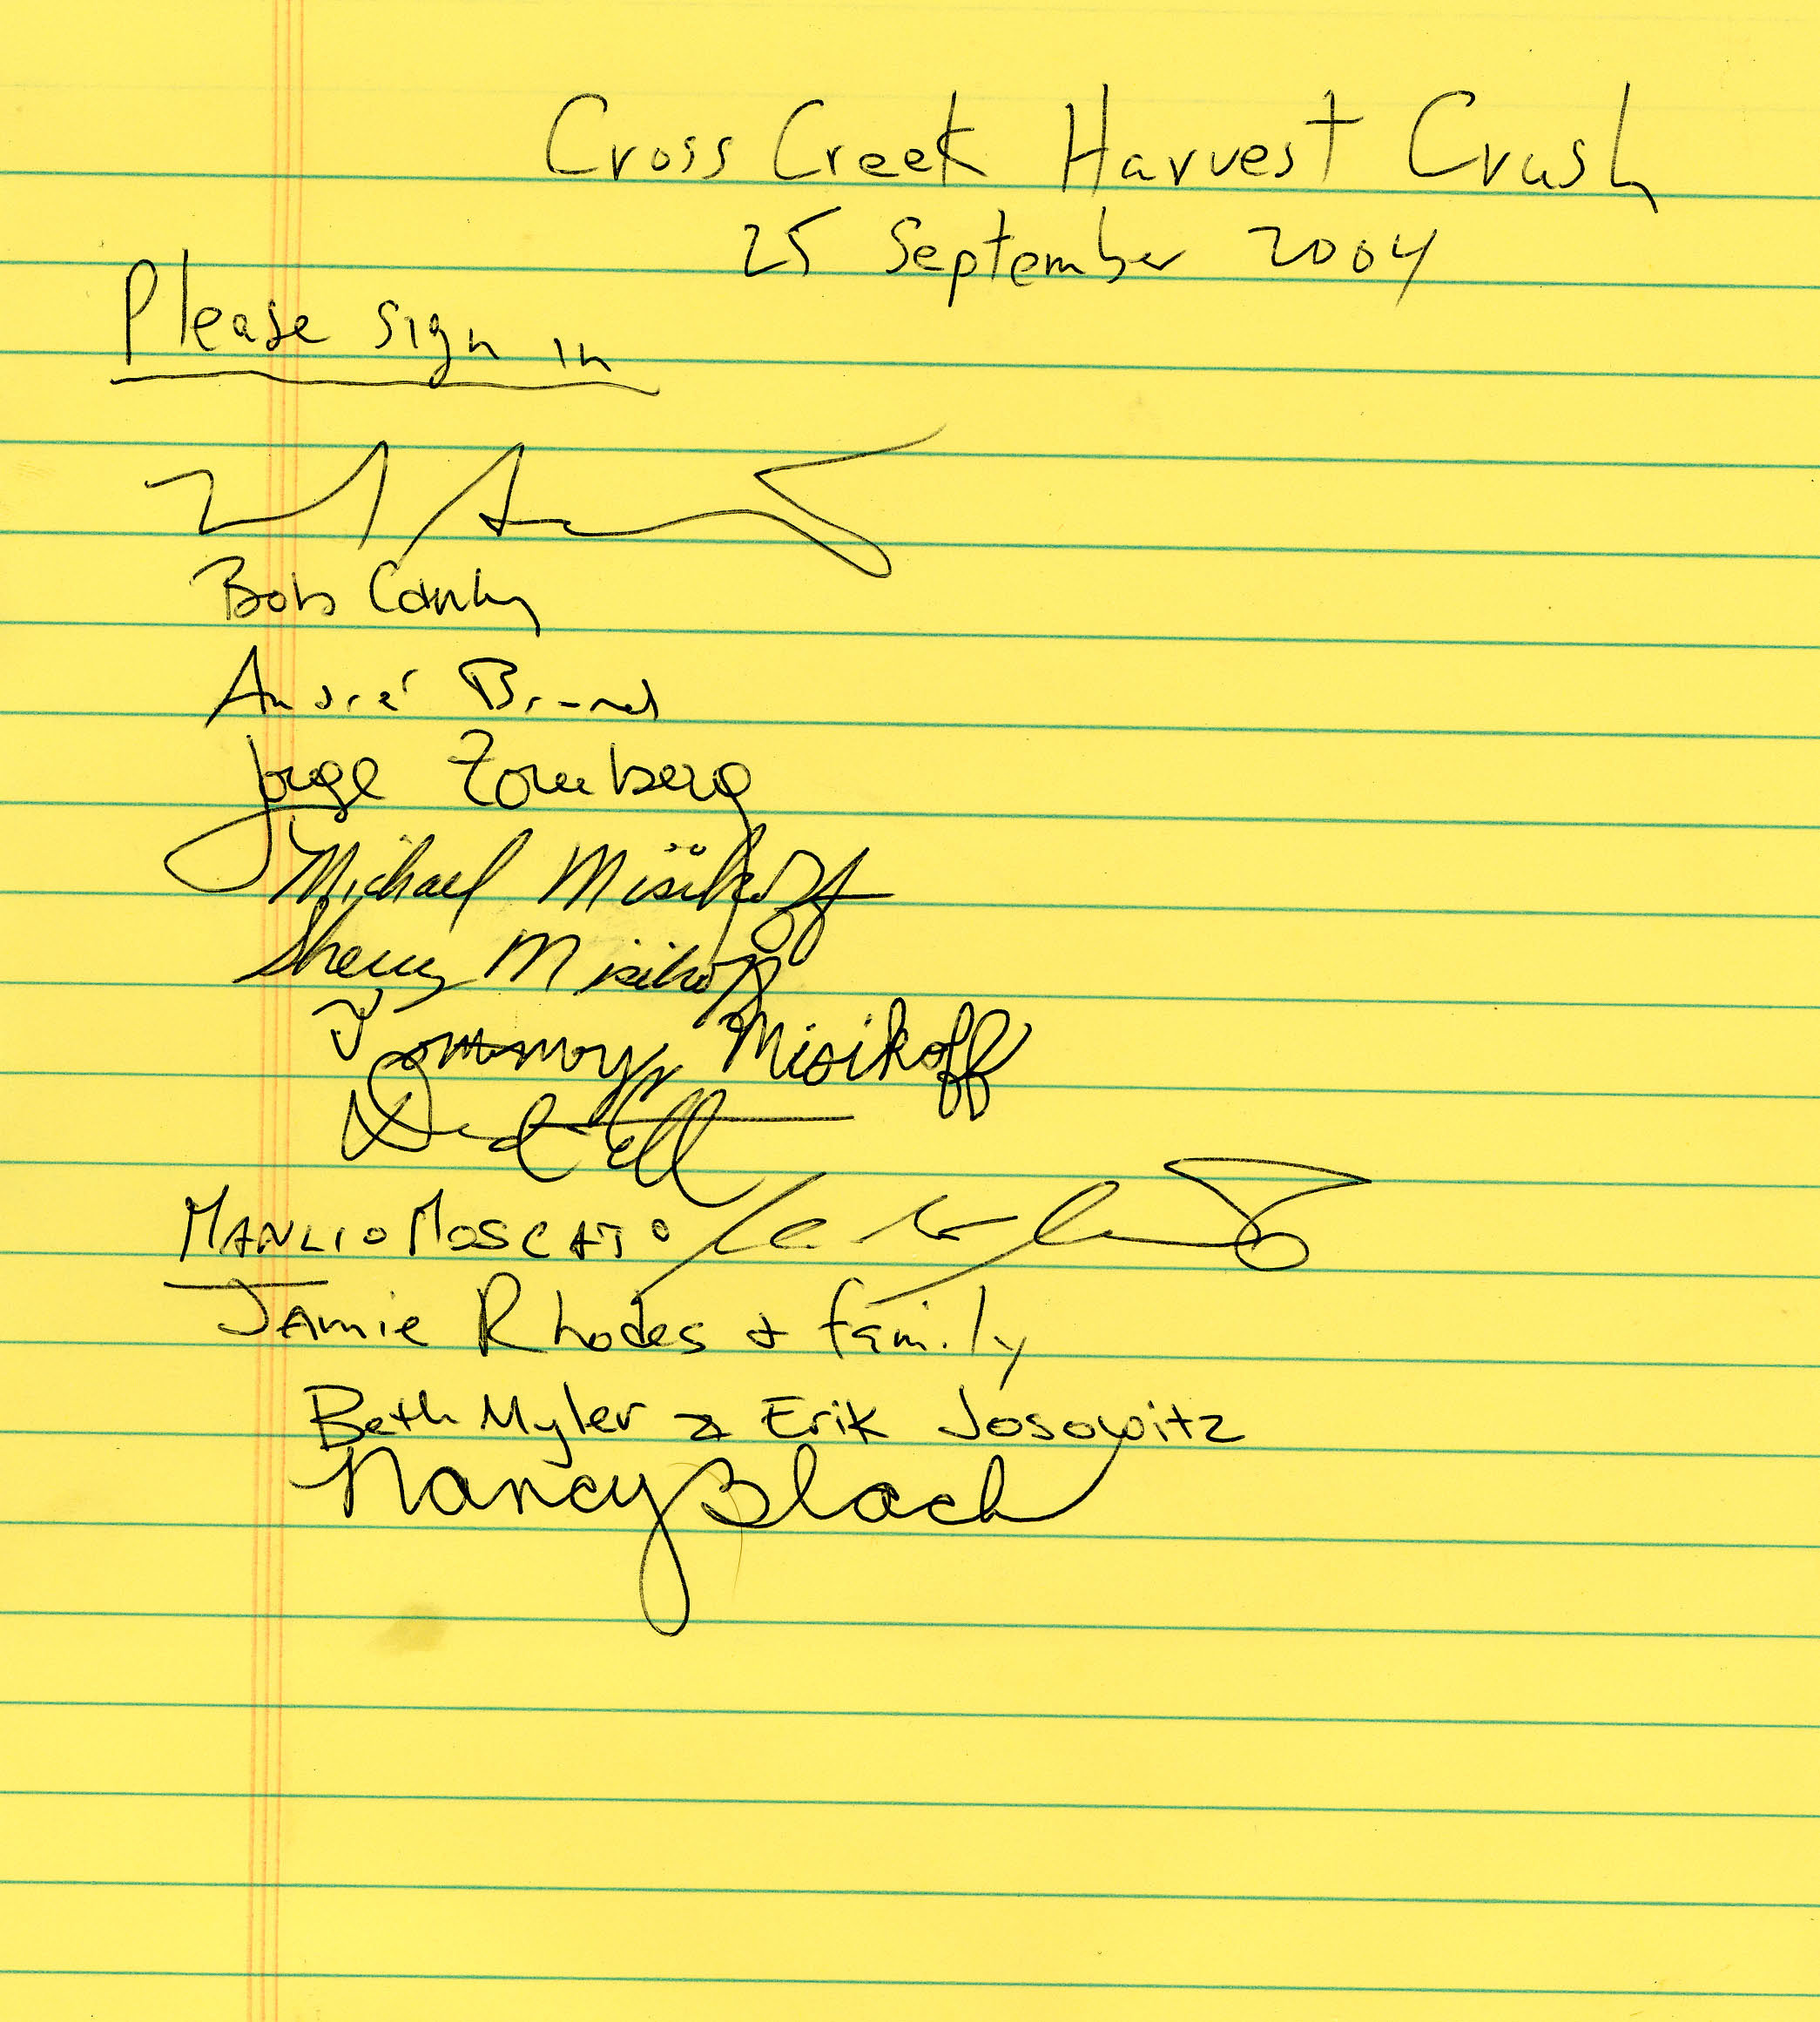 Cross Creek Harvest Crush
25 September 2004
Please sign in
Bob
André
Jorge Zornberg
Michael Misikoff
Sherry Misikoff
Tommy Misikoff
MANLIO MOSCATO
JAmie Rhodes & family
Beth Myler & Erik Josowitz
Nancy Black